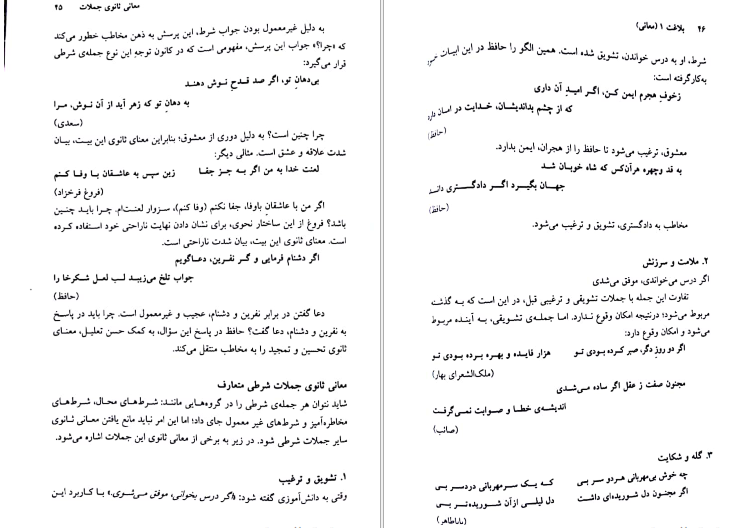 معانی ثانوی جملات ۴۵
به دلیل غیرمعمول بودن جواب شرط، این پرسش به ذهن مخاطب خطور می‌کند
که «چرا؟» جواب این پرسش، مفهومی است که در کانون توجهِ این نوع جمله‌ی شرطی
قرار می‌گیرد:
بی‌دهانِ تو، اگر صد قدحِ نوش دهند
به دهانِ تو که زهر آید از آن نوش، مرا
(سعدی)
چرا چنین است؟ به دلیل دوری از معشوق؛ بنابراین معنای ثانوی این بیت، بیان
شدت علاقه و عشق است. مثالی دیگر:
لعنت خدا به من اگر به جـز جفـا زین سپس به عاشقان بـا وفـا کـنم
(فروغ فرخزاد)
اگر من با عاشقانِ باوفا، جفا نکنم (وفا کنم)، سـزوار لعنت‌ام. چـرا بایـد چنـین
باشد؟ فروغ از این ساختار نحوی، برای نشان دادن نهایت ناراحتی خود اسـتفاده کـرده
است. معنای ثانوی این بیت، بیان شدت ناراحتی است.
اگر دشنام فرمایی و گـر نفـرین، دعـاگویم
جواب تلخ می‌زیبـد لـب لعـل شـکرخا را
(حافظ)
دعا گفتن در برابر نفرین و دشنام، عجیب و غیرمعمول است. چرا باید در پاسخ
به نفرین و دشنام، دعا گفت؟ حافظ در پاسخ این سؤال، به کمک حسن تعلیل، معنـای
ثانوی تحسین و تمجید را به مخاطب منتقل می‌کند.
معانی ثانوی جملات شرطی متعارف
شاید نتوان هر جمله‌ی شرطی را در گروه‌هـایی مانند: شـرط‌های محـال، شـرط‌های
مخاطره‌آمیز و شرط‌های غیر معمول جای داد؛ اما این امر نباید مانع یافتن معـانی ثـانوی
سایر جملات شرطی شود. در زیر به برخی از معانی ثانوی این جملات اشاره می‌شود.
۱. تشویق و ترغیب
وقتی به دانش‌آموزی گفته شود: «اگر درس بخوانی، موفق می‌شوی.» بـا کـاربرد ایـن
۴۶ بلاغت ۱ (معانی)
شرط، او به درس خواندن، تشویق شده است. همین الگو را حافظ در این ابیـات
به‌کارگرفته است:
زخوفِ هجرم ایمن کـن، اگـر امیـدِ آن داری
که از چشم بداندیشان، خدایت در امـان دارد
(حافظ)
معشوق، ترغیب می‌شود تا حافظ را از هجران، ایمن بدارد.
به قد وچهره هرآن‌کس که شاه خوبـان شـد
جهـان بگیـرد اگـر دادگـستری دانـد
(حافظ)
مخاطب به دادگستری، تشویق و ترغیب می‌شود.
۲. ملامت و سرزنش
اگر درس می‌خواندی، موفق می‌شدی
تفاوت این جمله با جملات تشویقی و ترغیبی قبل، در این است که بـه گذشته
مربوط می‌شود؛ درنتیجه امکان وقوع نـدارد. امـا جمله‌ی تـشویقی، بـه آینـده مربـوط
می‌شود و امکان وقوع دارد:
اگر دو روزِ دگر، صبر کـرده بـودی تـو هزار فایـده و بهـره بـرده بـودی تـو
(ملک‌الشعرای بهار)
مجنون صفت ز عقل اگر ساده می‌شـدی
اندیشه‌ی خطـا و صـوابت نمـی‌گرفت
(صائب)
۳. گله و شکایت
چه خوش بی‌مهربانی هـردو سـر بـی کـه یـک سـر مهربـانی دردسـر بـی
اگر مجنـون دل شـوریده‌ای داشـت دل لیلـی ازآن شـوریده‌تـر بـی
(باباطاهر)